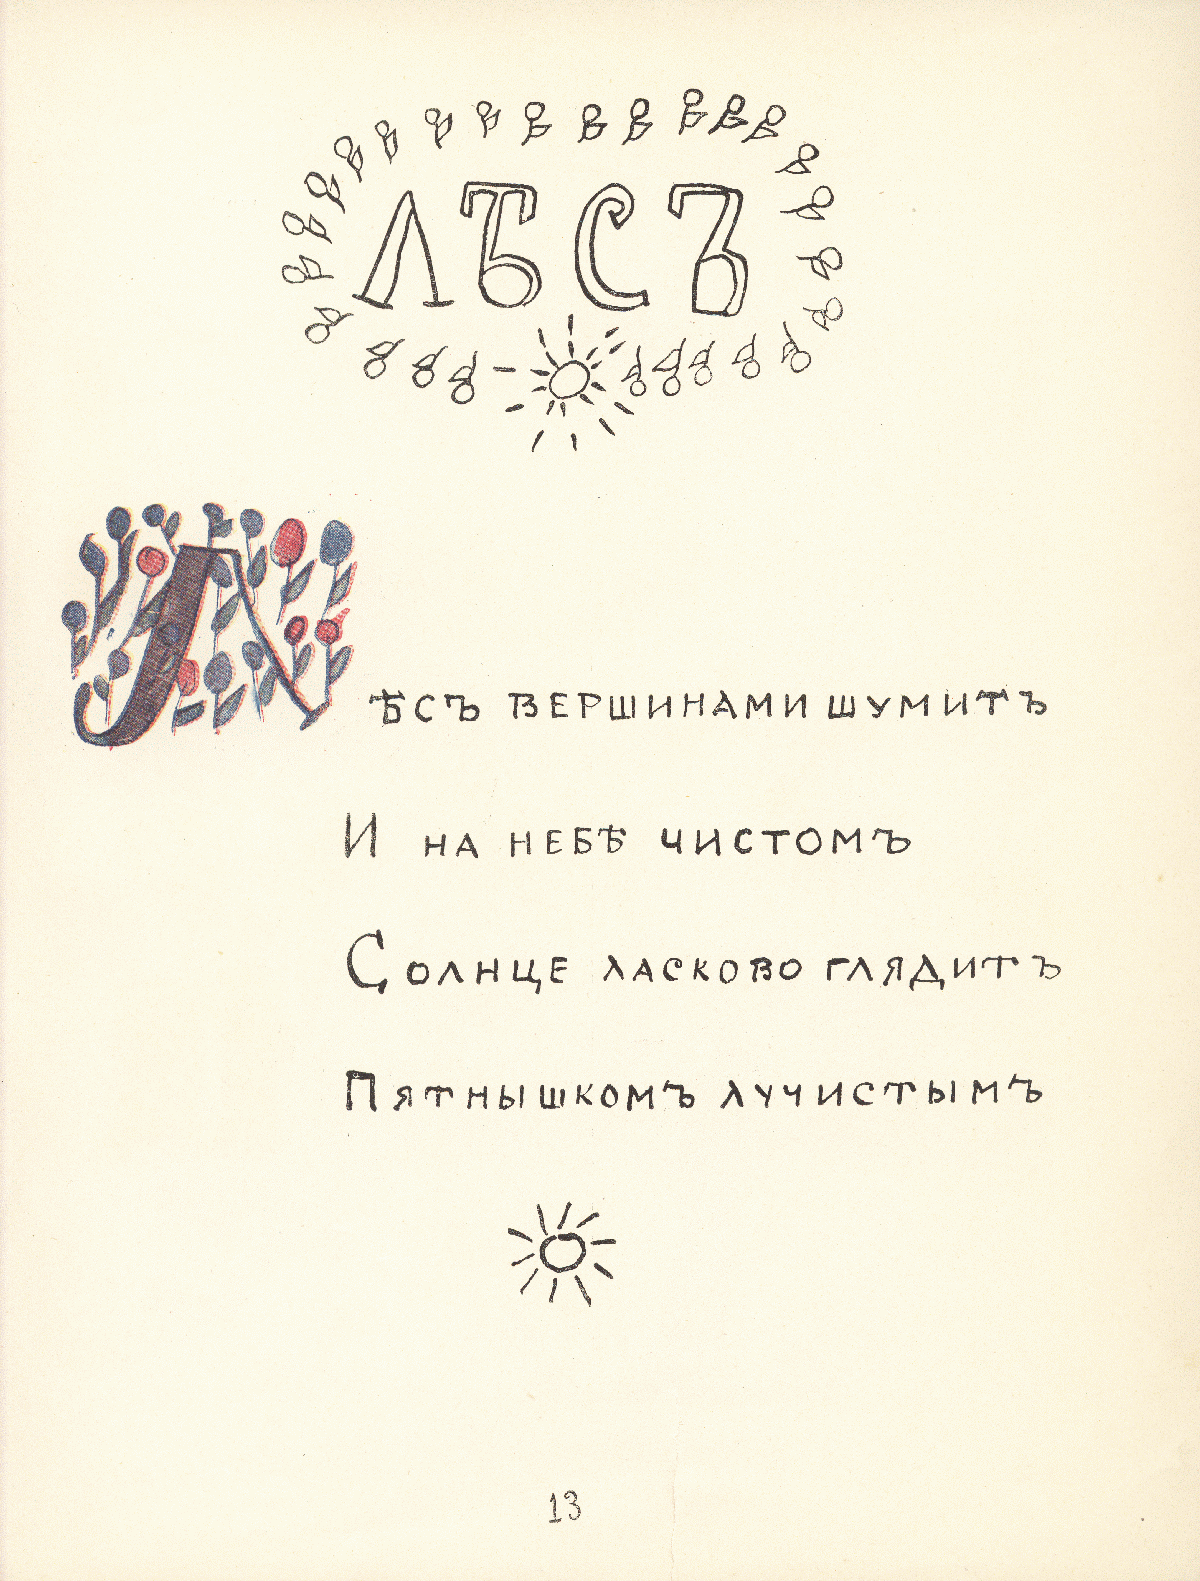 ЛѢСЪ
ЛѢСЪ ВЕРШИНАМИ ШУМИТЪ
И НА НЕБѢ ЧИСТОМЪ
СОЛНЦЕ ЛАСКОВО ГЛЯДИТЪ
ПЯТНЫШКОМЪ ЛУЧИСТЫМЪ
13